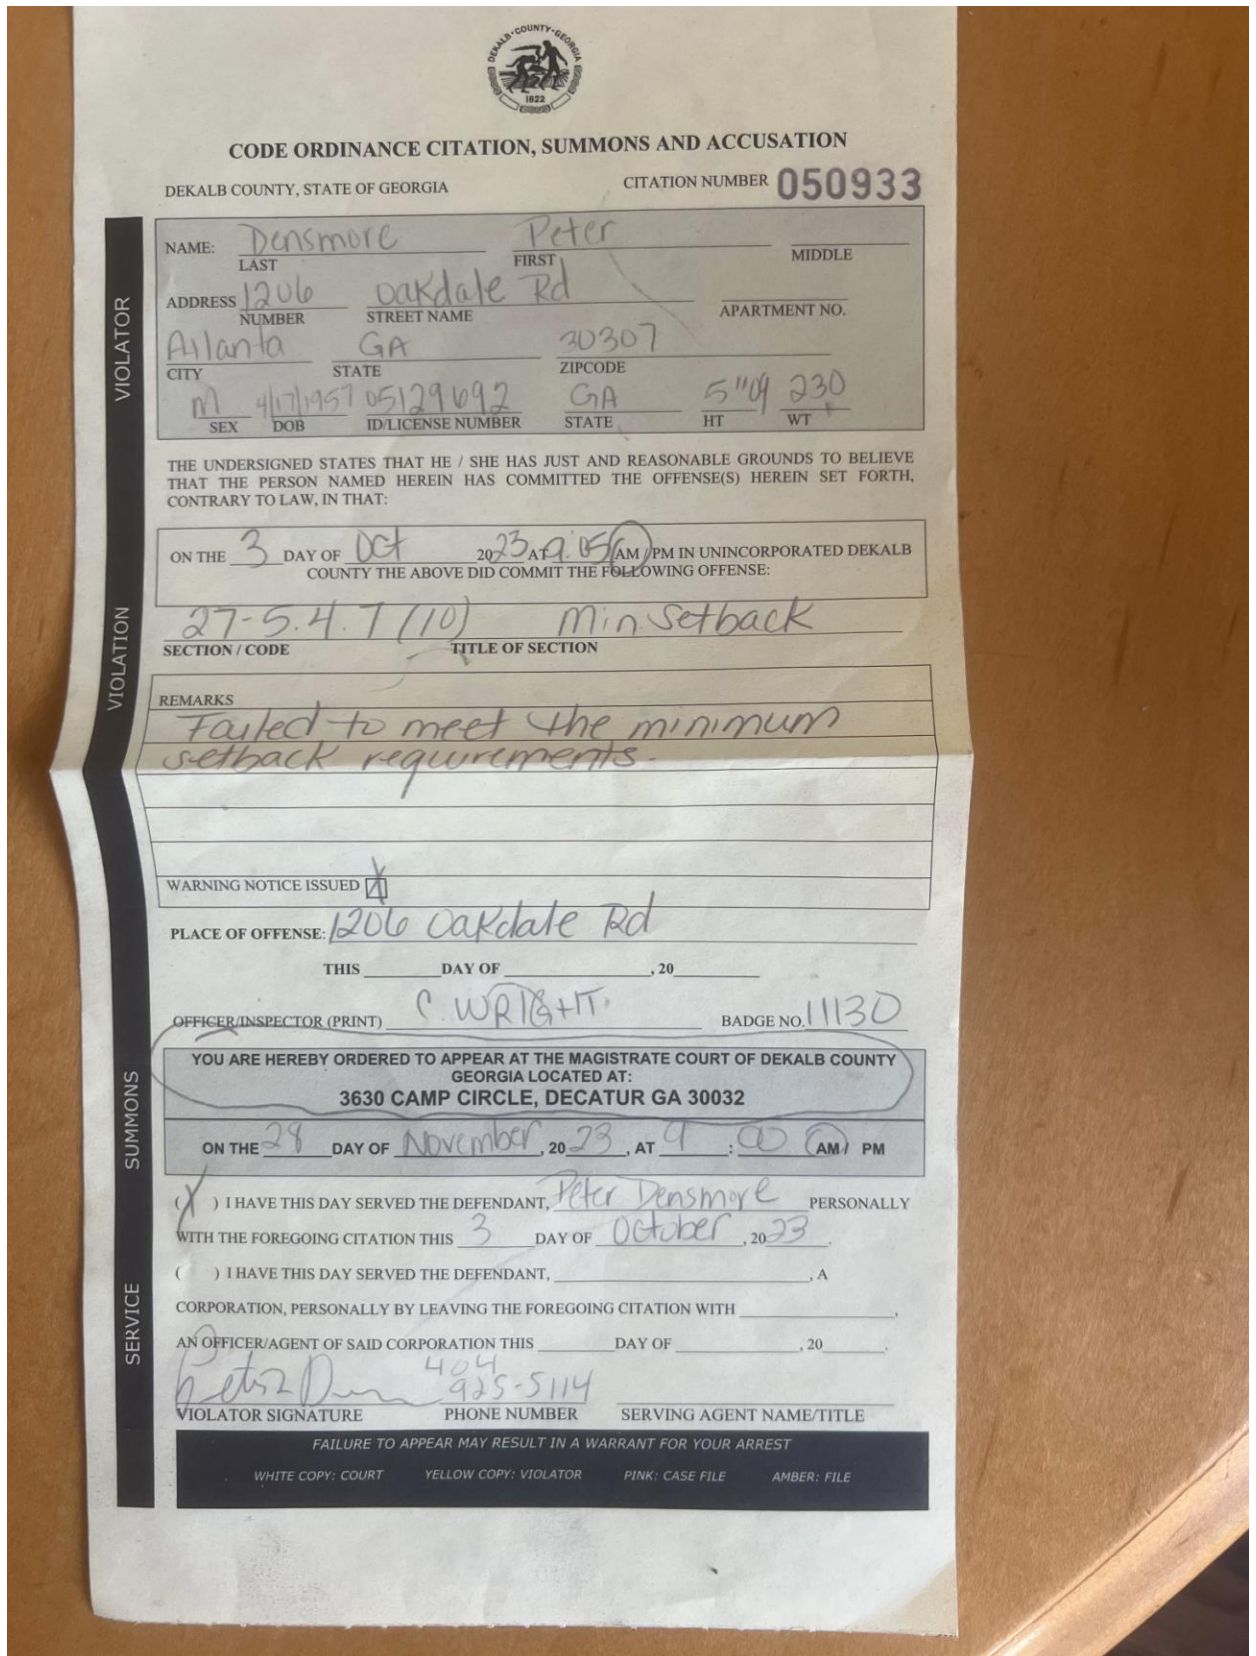 DEKALB·COUNTY·GEORGIA
1822
CODE ORDINANCE CITATION, SUMMONS AND ACCUSATION
DEKALB COUNTY, STATE OF GEORGIA CITATION NUMBER 050933
VIOLATOR
NAME: Densmore Peter
LAST FIRST MIDDLE
ADDRESS 1206 Oakdale Rd
NUMBER STREET NAME APARTMENT NO.
Atlanta GA 30307
CITY STATE ZIPCODE
M 4/17/1957 05129692 GA 5"09 230
SEX DOB ID/LICENSE NUMBER STATE HT WT
THE UNDERSIGNED STATES THAT HE / SHE HAS JUST AND REASONABLE GROUNDS TO BELIEVE
THAT THE PERSON NAMED HEREIN HAS COMMITTED THE OFFENSE(S) HEREIN SET FORTH,
CONTRARY TO LAW, IN THAT:
VIOLATION
ON THE 3 DAY OF Oct 2023 AT 9:05 AM / PM IN UNINCORPORATED DEKALB
COUNTY THE ABOVE DID COMMIT THE FOLLOWING OFFENSE:
27-5.4.7 (10) Min. Setback
SECTION / CODE TITLE OF SECTION
REMARKS
Failed to meet the minimum
setback requirements.
WARNING NOTICE ISSUED X
PLACE OF OFFENSE: 1206 Oakdale Rd
THIS DAY OF , 20
OFFICER/INSPECTOR (PRINT) C. WRIGHT. BADGE NO. 11130
SUMMONS
YOU ARE HEREBY ORDERED TO APPEAR AT THE MAGISTRATE COURT OF DEKALB COUNTY
GEORGIA LOCATED AT:
3630 CAMP CIRCLE, DECATUR GA 30032
ON THE 28 DAY OF November, 20 23, AT 9 : 00 AM / PM
SERVICE
(X) I HAVE THIS DAY SERVED THE DEFENDANT, Peter Densmore PERSONALLY
WITH THE FOREGOING CITATION THIS 3 DAY OF October, 2023.
( ) I HAVE THIS DAY SERVED THE DEFENDANT, , A
CORPORATION, PERSONALLY BY LEAVING THE FOREGOING CITATION WITH ,
AN OFFICER/AGENT OF SAID CORPORATION THIS DAY OF , 20 .
404
925-5114
VIOLATOR SIGNATURE PHONE NUMBER SERVING AGENT NAME/TITLE
FAILURE TO APPEAR MAY RESULT IN A WARRANT FOR YOUR ARREST
WHITE COPY: COURT YELLOW COPY: VIOLATOR PINK: CASE FILE AMBER: FILE